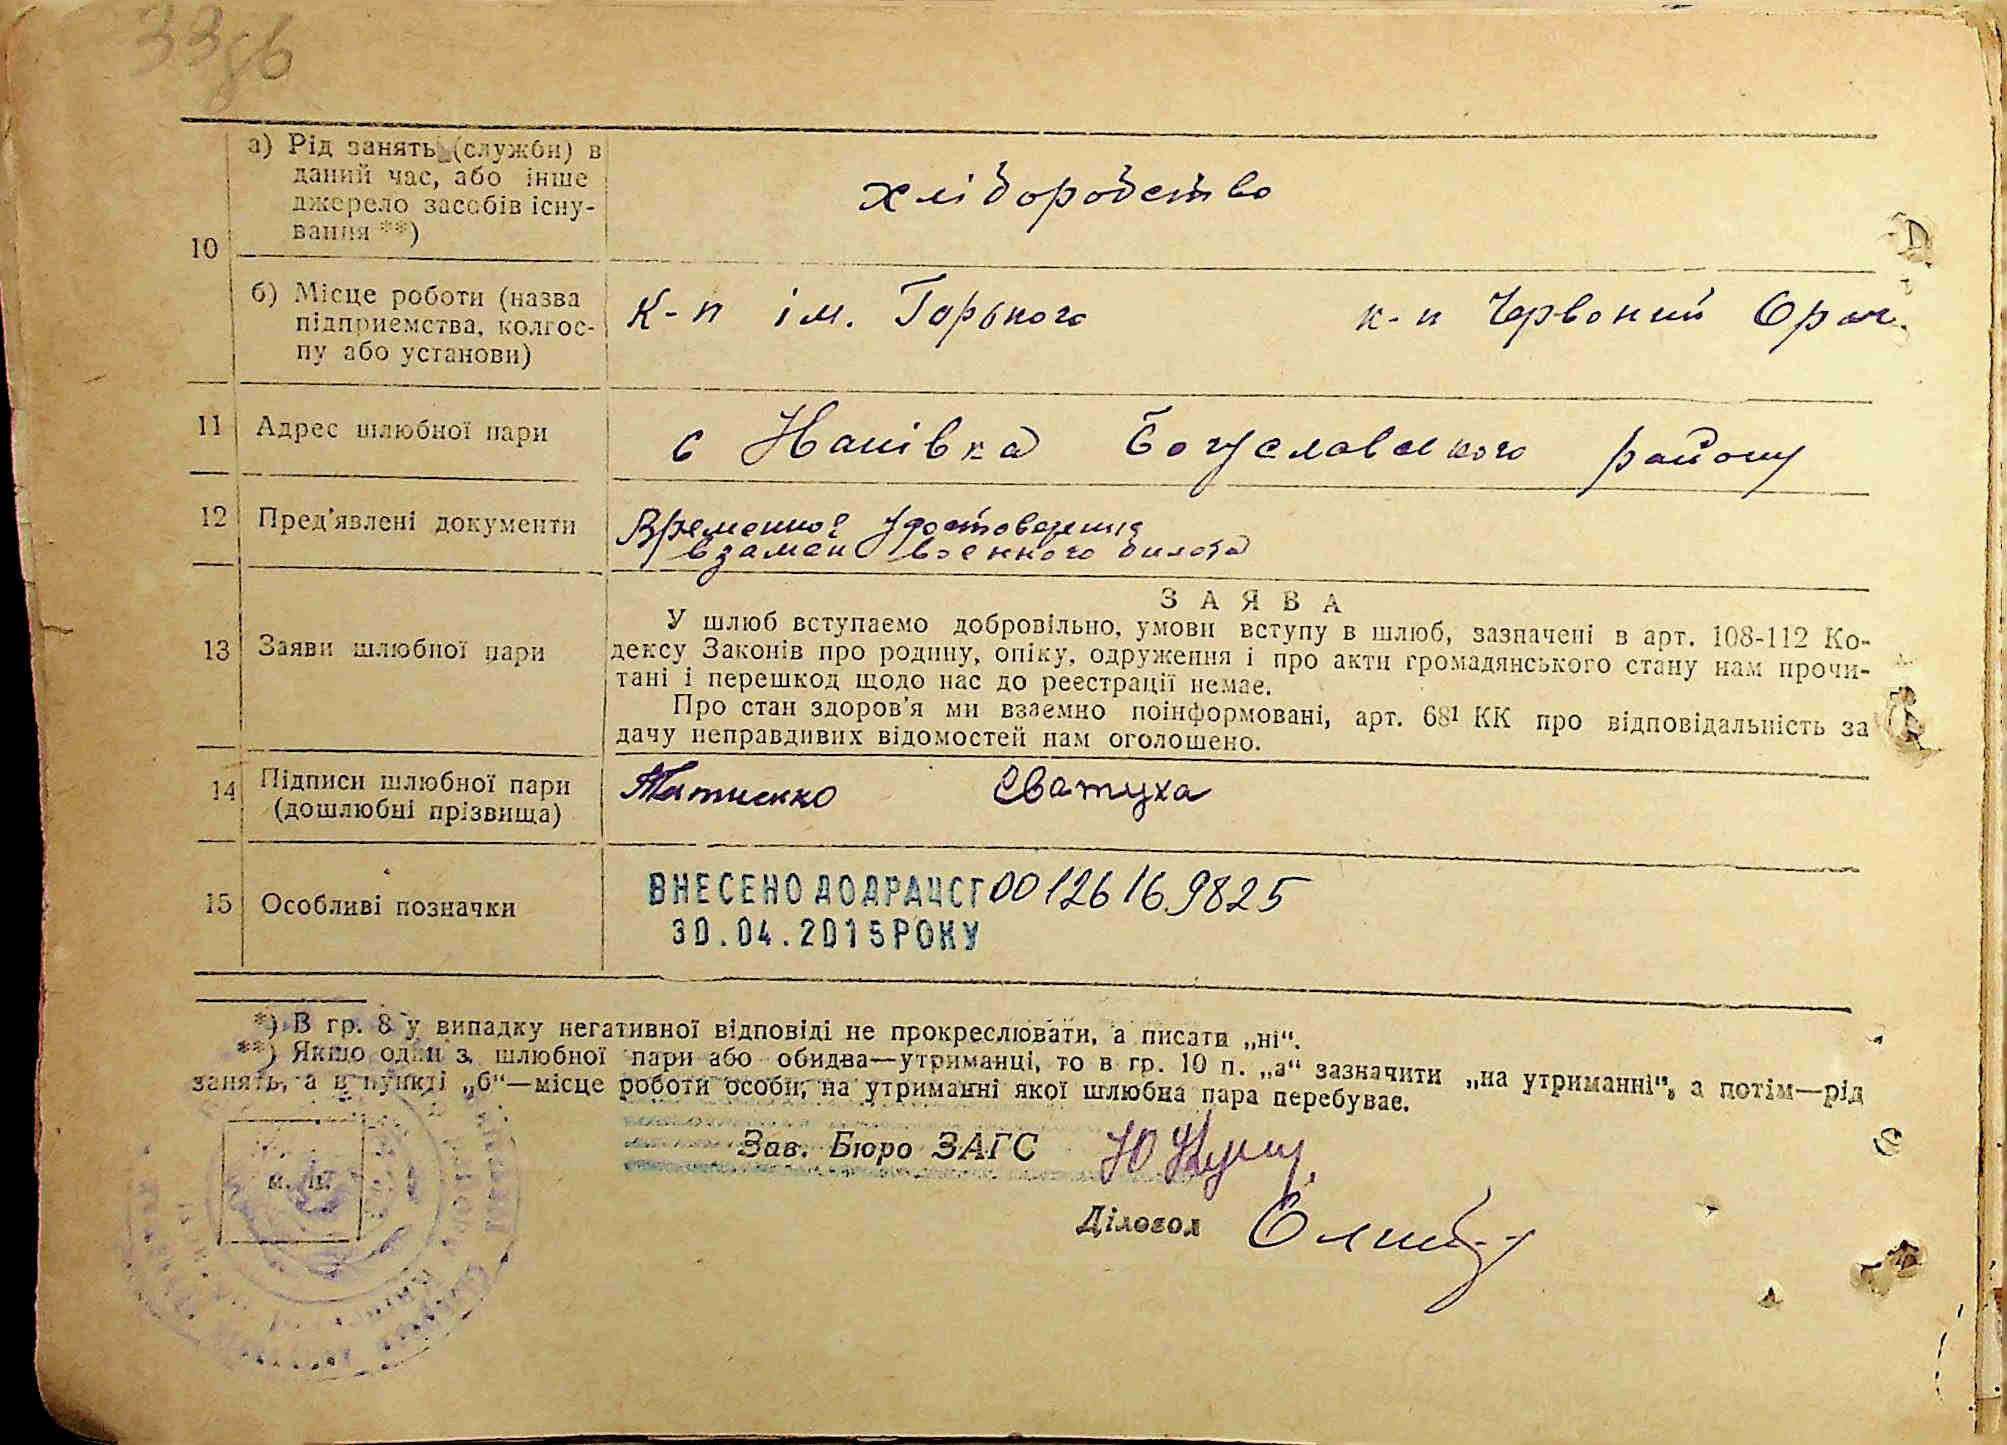 33зв
а) Рід занять (служби) в
даний час, або інше
джерело засобів існу-
вання **)
хліборобство
10
б) Місце роботи (назва
підприємства, колгос-
пу або установи)
К-п ім. Горького к-п Червоний Орач.
11 Адрес шлюбної пари
с Нашівка Богуславського району
12 Пред'явлені документи
Временної удостоверения
взамен военного билета
З А Я В А
13 Заяви шлюбної пари
У шлюб вступаємо добровільно, умови вступу в шлюб, зазначені в арт. 108-112 Ко-
дексу Законів про родину, опіку, одруження і про акти громадянського стану нам прочи-
тані і перешкод щодо нас до реєстрації немає.
Про стан здоров'я ми взаємно поінформовані, арт. 68¹ КК про відповідальність за
дачу неправдивих відомостей нам оголошено.
14 Підписи шлюбної пари
(дошлюбні прізвища)
Сватуха
15 Особливі позначки
ВНЕСЕНО ДО ДРАЦСГ 00126169825
30.04.2015 РОКУ
*) В гр. 8 у випадку негативної відповіді не прокреслювати, а писати „ні“.
**) Якщо один з шлюбної пари або обидва—утриманці, то в гр. 10 п. „а“ зазначити „на утриманні“, а потім—рід
занять, а в пункті „б“—місце роботи особи, на утриманні якої шлюбна пара перебуває.
Зав. Бюро ЗАГС
м. п.
Діловод